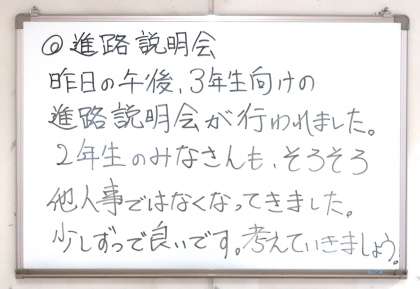 ◎進路説明会
昨日の午後、3年生向けの
進路説明会が行われました。
2年生のみなさんも、そろそろ
他人事ではなくなってきました。
少しずつで良いです。考えていきましょう。